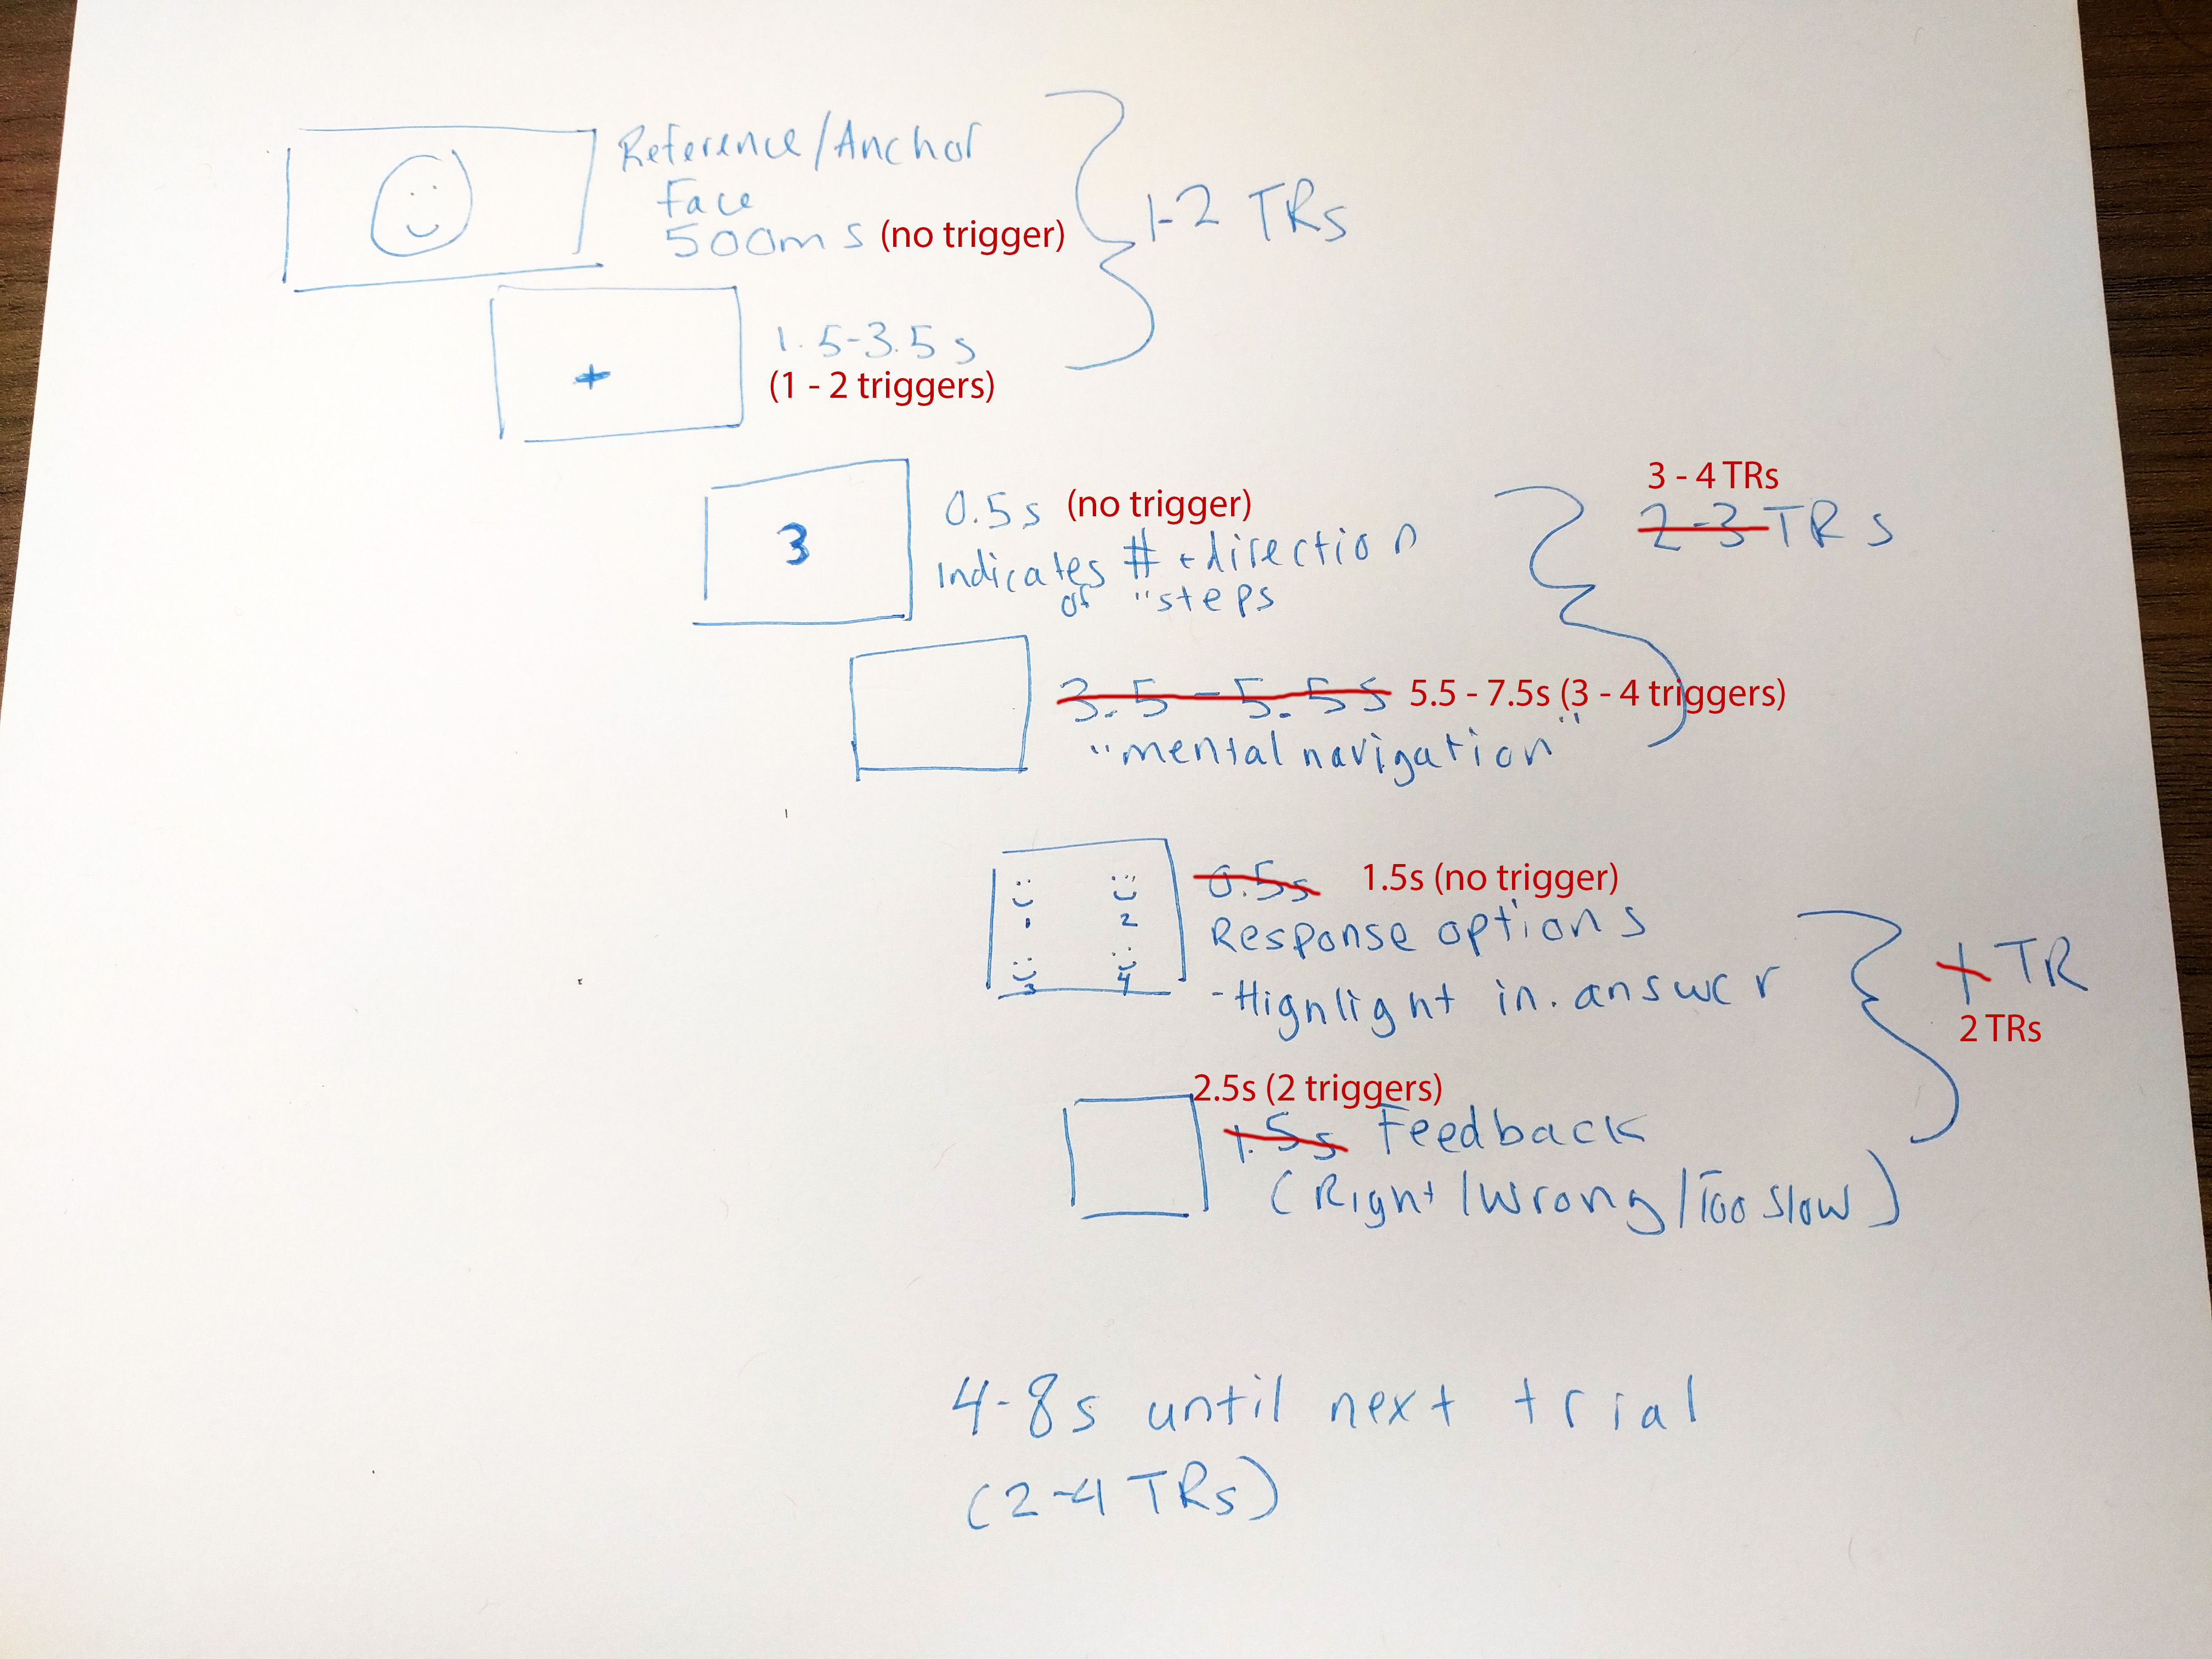 Reference/Anchor
Face
500ms (no trigger)
1-2 TRs
+
1.5-3.5s
(1 - 2 triggers)
3
0.5s (no trigger)
Indicates # + direction
of "steps
3 - 4 TRs
2-3 TRs
3.5 - 5.5s 5.5 - 7.5s (3 - 4 triggers)
"mental navigation"
1 2
3 4
0.5s 1.5s (no trigger)
Response options
-Highlight in. answer
1 TR
2 TRs
2.5s (2 triggers)
1.5s Feedback
(Right/Wrong/Too slow)
4-8s until next trial
(2-4 TRs)